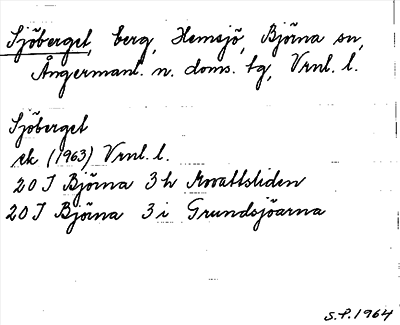 Sjöberget, berg, Hemsjö, Björna sn,
Ångermanl. n. doms. tg, Vrnl. l.
Sjöberget
ek (1963) Vrnl. l.
20 J Björna 3 h Movattsliden
20 J Björna 3 i Grundsjöarna
S.F. 1964